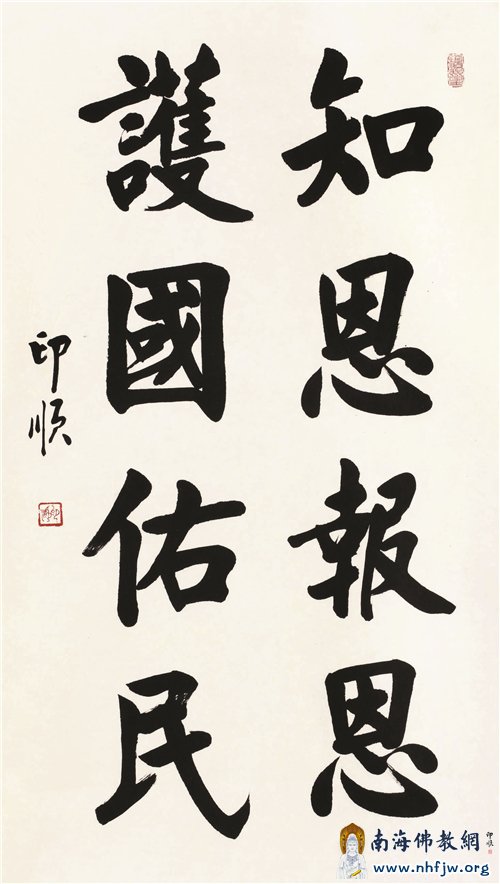 知恩報恩
護國佑民
印順
南海佛教網
印順
www.nhfjw.org